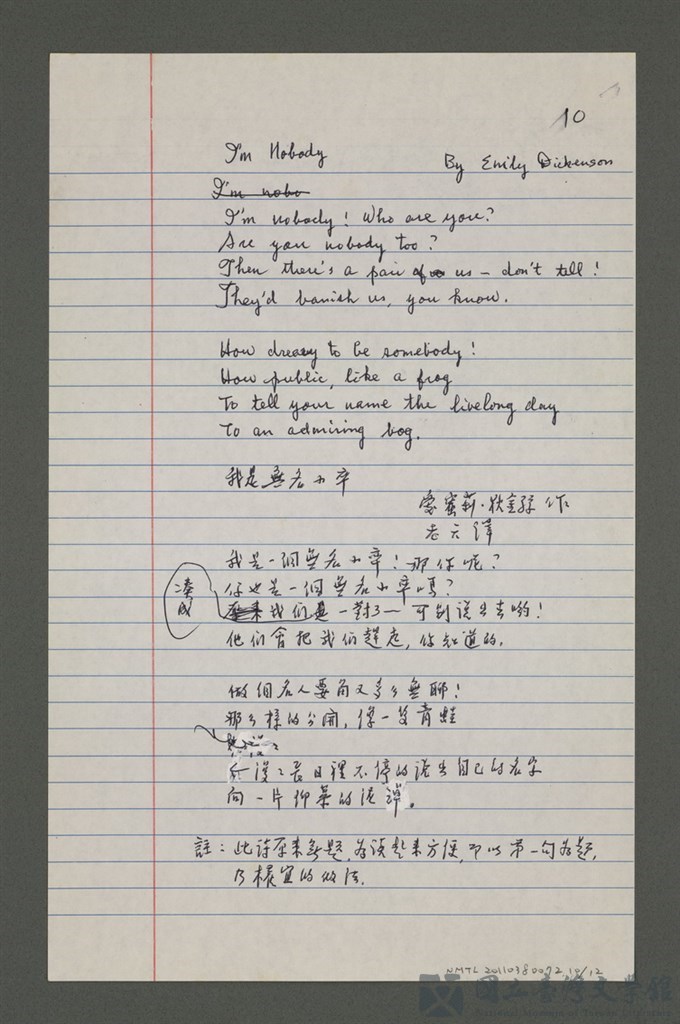 10
I'm Nobody
By Emily Dickenson
I'm nobo
I'm nobody! Who are you?
Are you nobody too?
Then there's a pair of us — don't tell!
They'd banish us, you know.
How dreary to be somebody!
How public, like a frog
To tell your name the livelong day
To an admiring bog.
我是無名小卒
愛蜜莉·狄金蓀作
老六譯
我是一個無名小卒！那你呢？
你也是一個無名小卒嗎？
凑成
我们 一對了— 可別说出去喲！
他们會把我们趕走，你知道的。
做個名人要角又多么無聊！
那么樣的公開，像一隻青蛙
漫漫長日裡不停的說出自己的名字
向一片仰慕的泥潭。
註：此詩原来無題，為讀起来方便，即以第一句為題，
乃權宜的做法。
NMTL 20110380072 10/12
國立臺灣文學館
National Museum of Taiwan Literature